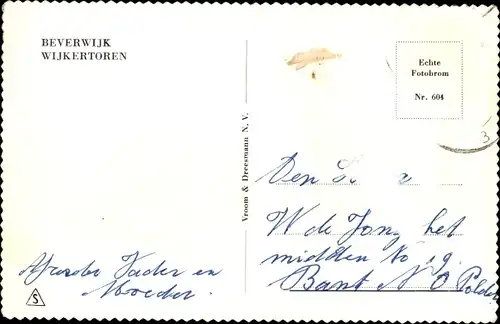 BEVERWIJK
WIJKERTOREN
Echte
Fotobrom
Nr. 604
Vroom & Dreesmann N.V.
Den
W de Jong het
midden No 19.
Bant N O Polder
Vader en
Moeder.
S
3